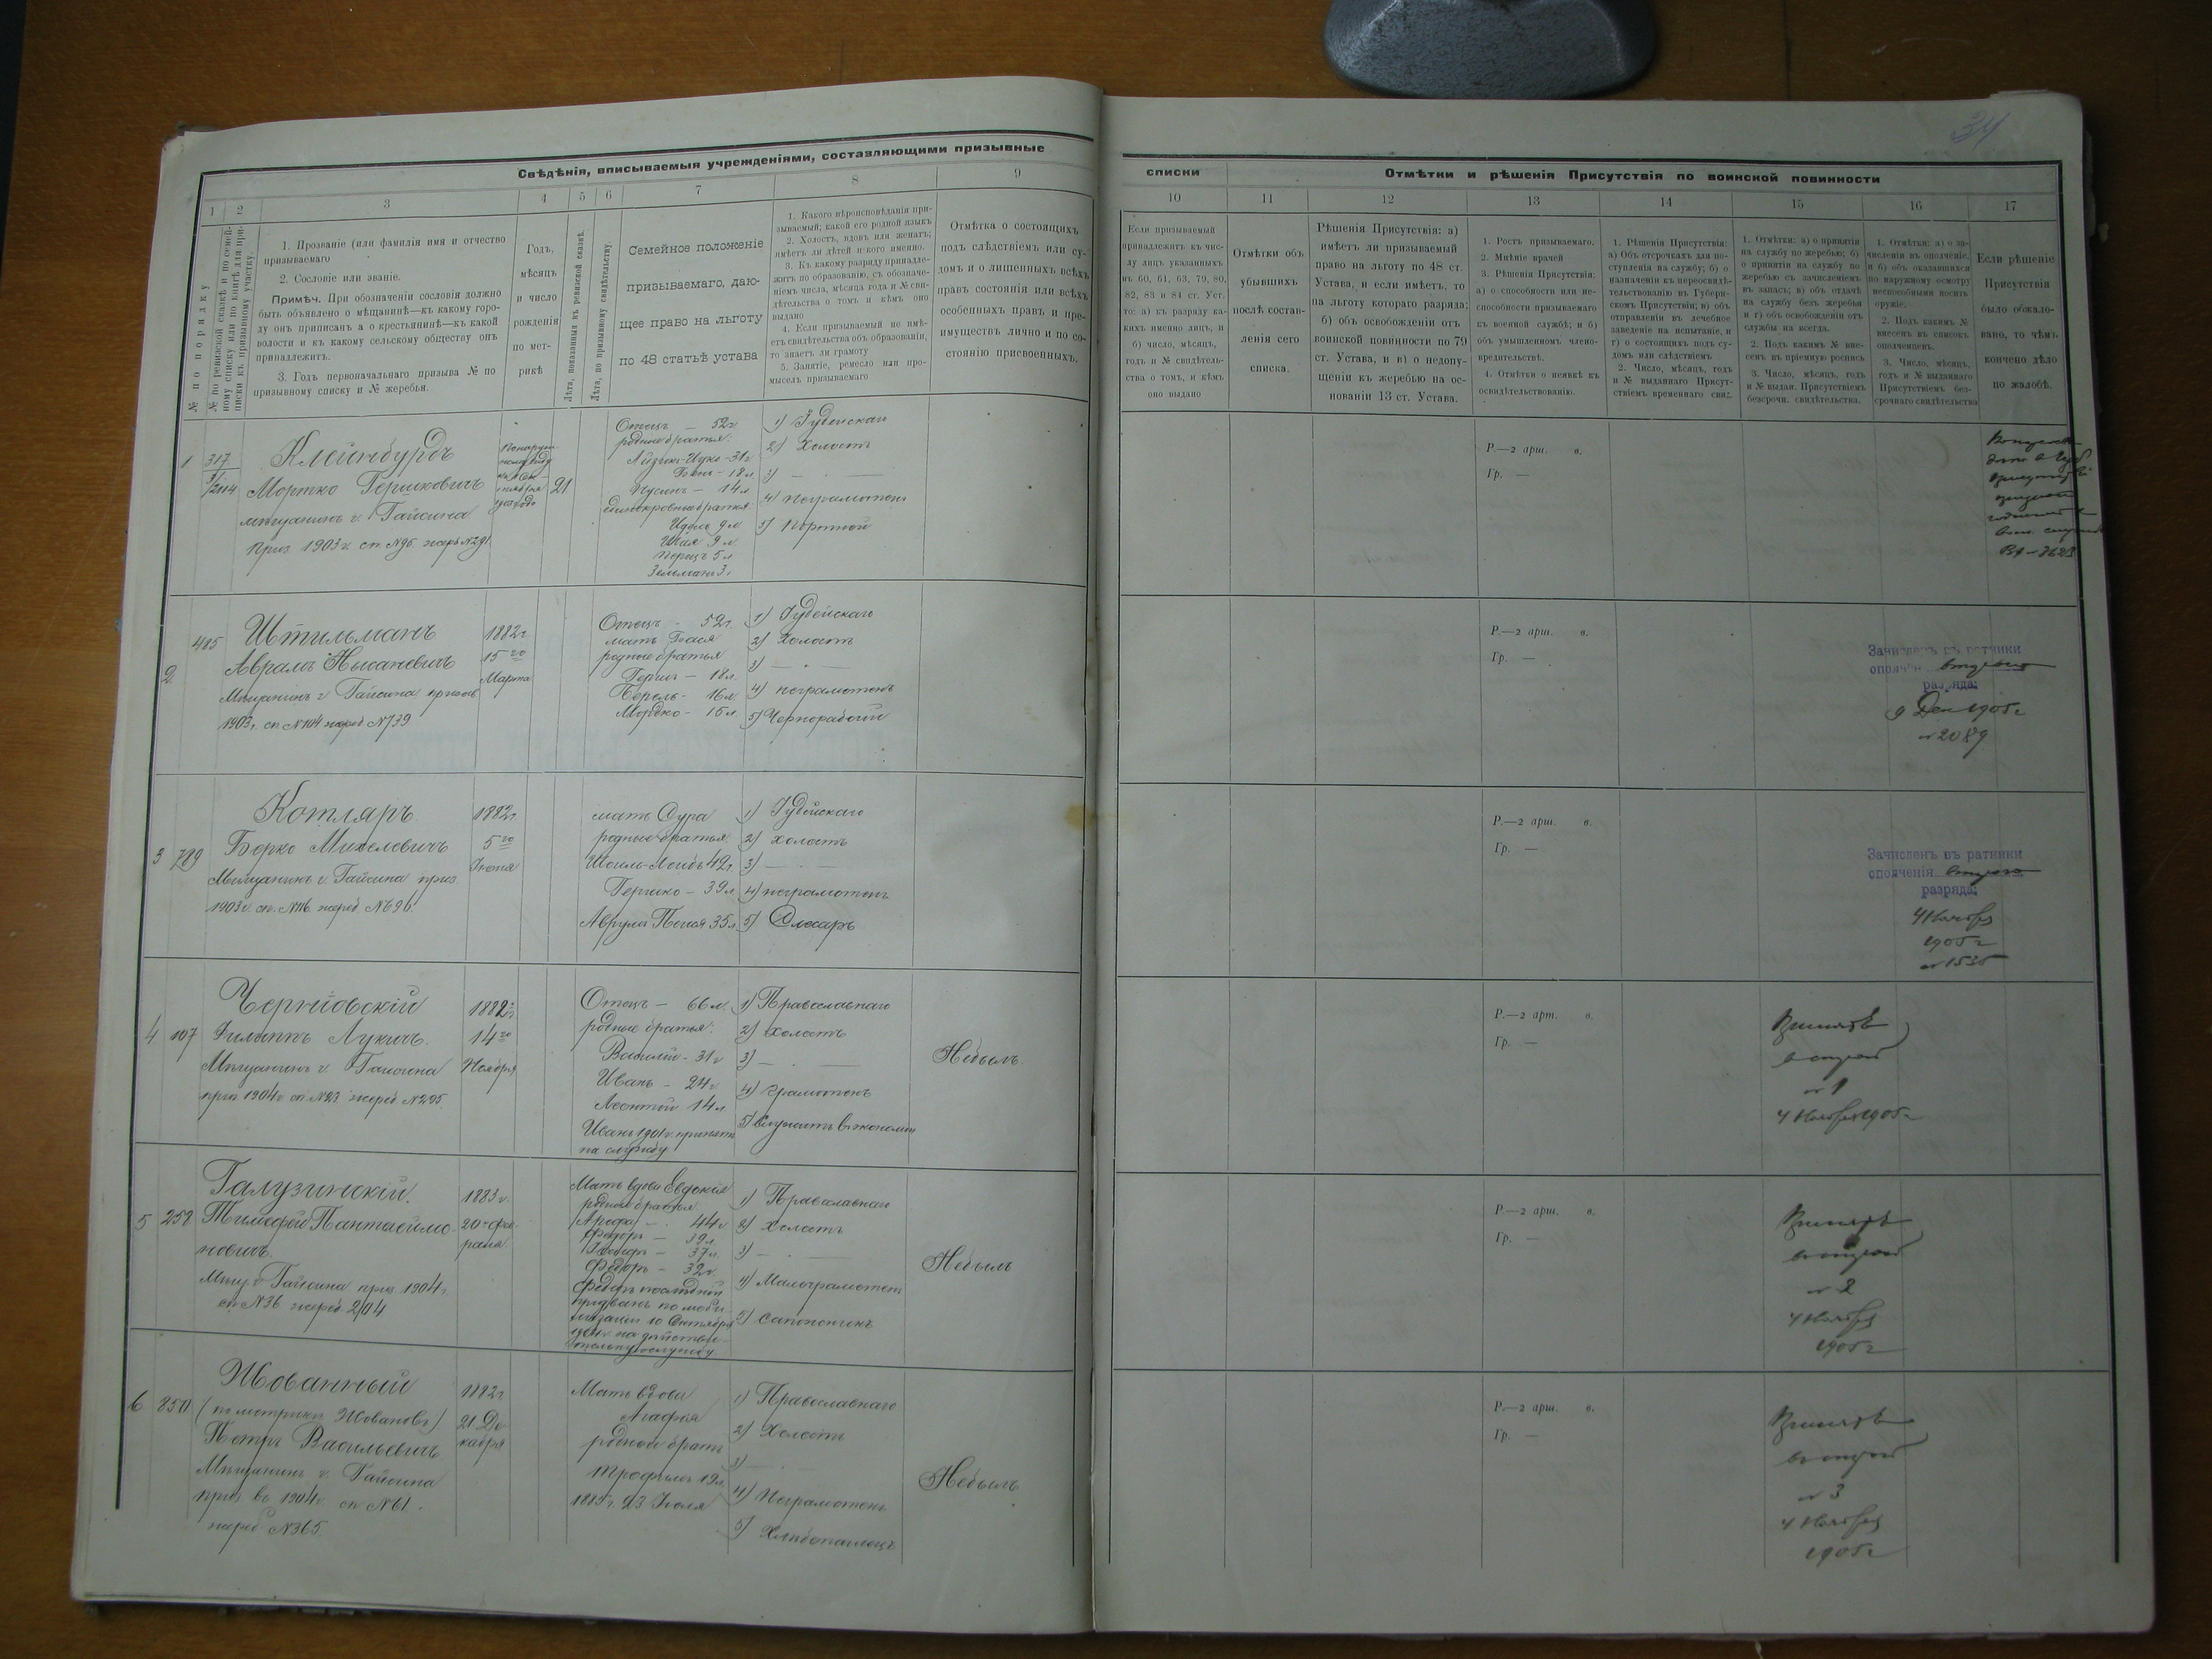 34
Свѣдѣнія, вписываемыя учрежденіями, составляющими призывные
списки
Отмѣтки и рѣшенія Присутствія по воинской повинности
1 2 3 4 5 6 7 8 9
10 11 12 13 14 15 16 17
№ по порядку
№ по ревизской сказкѣ и по семей-
ному списку или по книгѣ для при-
писки къ призывному участку.
1. Прозваніе (или фамилія имя и отчество
призываемаго
2. Сословіе или званіе.
Примѣч. При обозначеніи сословія должно
быть объявлено о мѣщанинѣ—къ какому горо-
ду онъ приписанъ а о крестьянинѣ—къ какой
волости и къ какому сельскому обществу онъ
принадлежитъ.
3. Годъ первоначальнаго призыва № по
призывному списку и № жеребья.
Годъ,
мѣсяцъ
и число
рожденія
по мет-
рикѣ
Лѣта, показанныя въ ревизской сказкѣ.
Лѣта, по призывному свидѣтельству.
Семейное положеніе
призываемаго, даю-
щее право на льготу
по 48 статьѣ устава
1. Какого вѣроисповѣданія при-
зываемый; какой его родной языкъ
2. Холостъ, вдовъ или женатъ;
имѣетъ ли дѣтей и кого именно.
3. Къ какому разряду принадле-
житъ по образованію, съ обозначе-
ніемъ числа, мѣсяца года и № сви-
дѣтельства о томъ и кѣмъ оно
выдано
4. Если призываемый не имѣ-
етъ свидѣтельства объ образованіи,
то знаетъ ли грамоту
5. Занятіе, ремесло или про-
мыселъ призываемаго
Отмѣтка о состоящихъ
подъ слѣдствіемъ или су-
домъ и о лишенныхъ всѣхъ
правъ состоянія или всѣхъ
особенныхъ правъ и пре-
имуществъ лично и по со-
стоянію присвоенныхъ.
Если призываемый
принадлежитъ къ чис-
лу лицъ указанныхъ
въ 60, 61, 63, 79, 80,
82, 83 и 84 ст. Уст.
то: а) къ разряду ка-
кихъ именно лицъ, и
б) число, мѣсяцъ,
годъ и № свидѣтель-
ства о томъ, и кѣмъ
оно выдано
Отмѣтки объ
убывшихъ
послѣ состав-
ленія сего
списка.
Рѣшенія Присутствія: а)
имѣетъ ли призываемый
право на льготу по 48 ст.
Устава, и если имѣетъ, то
на льготу котораго разряда;
б) объ освобожденіи отъ
воинской повинности по 79
ст. Устава, и в) о недопу-
щеніи къ жеребью на ос-
нованіи 13 ст. Устава.
1. Ростъ призываемаго.
2. Мнѣніе врачей
3. Рѣшенія Присутствія:
а) о способности или не-
способности призываемаго
къ военной службѣ; и б)
объ умышленномъ члено-
вредительствѣ.
4. Отмѣтки о неявкѣ къ
освидѣтельствованію.
1. Рѣшенія Присутствія:
а) Объ отсрочкахъ для по-
ступленія на службу; б) о
назначеніи къ переосвидѣ-
тельствованію въ Губерн-
скомъ Присутствіи; в) объ
отправленіи въ лечебное
заведеніе на испытаніе, и
г) о состоящихъ подъ су-
домъ или слѣдствіемъ
2. Число, мѣсяцъ, годъ
и № выданнаго Присут-
ствіемъ временнаго свид.
1. Отмѣтки: а) о принятіи
на службу по жеребью; б)
о принятіи на службу по
жеребью съ зачисленіемъ
въ запасъ; в) объ отдачѣ
на службу безъ жеребья
и г) объ освобожденіи отъ
службы на всегда.
2. Подъ какимъ № вне-
сенъ въ пріемную роспись
3. Число, мѣсяцъ, годъ
и № выдан. Присутствіемъ
безсрочн. свидѣтельства.
1. Отмѣтки: а) о за-
численіи въ ополченіе,
и б) объ оказавшихся
по наружному осмотру
неспособными носить
оружіе.
2. Подъ какимъ №
внесенъ въ списокъ
ополченцевъ.
3. Число, мѣсяцъ,
годъ и № выданнаго
Присутствіемъ без-
срочнаго свидѣтельства
Если рѣшеніе
Присутствія
было обжало-
вано, то чѣмъ
кончено дѣло
по жалобѣ.
1 317
Клейнбурдъ
Мортко Гершковичъ
мѣщанинъ г. Гайсина
приз. 1903 г. сп. №95. жереб №291.
21
Отецъ — 52 г.
родные братья:
Айзикъ-Ицко - 31 г
Бень - 18 л.
Нусинъ — 14 л
единокровные братья
Идель 9 л
Шая 9 л.
Перецъ 5 л
Зельманъ 3 г
1) Іудейскаго
2) Холостъ
3) —
4) неграмотенъ
5) Портной
Р.—2 арш. в.
Гр. —
2 485
Штильманъ
Аврамъ Нысаневичъ
Мѣщанинъ г Гайсина призыв
1903 г. сп №104 жереб №739
1882 г.
15 го
Марта
Отецъ - 52 г.
мать Бася
родные братья
Гершъ — 18 л.
Берель - 16 л.
Мордко - 15 л.
1) Іудейскаго
2) Холостъ
3) —
4) неграмотенъ
5) Чернорабочій
Р.—2 арш. в.
Гр. —
Зачисленъ въ ратники
ополчен второго
разряда:
9 Дек 1905 г
№ 2089
3 789
Котляръ
Борко Михелевичъ
Мѣщанинъ г. Гайсина приз.
1903 г. сп. №116. жереб. №696.
1882 г.
5 го
Іюня
мать Сура
родные братья
Шоиль-Лейбъ 42 г.
Гершко — 39 л.
Аврумъ Песах 35 л.
1) Іудейскаго
2) холостъ
3) —
4) неграмотенъ
5) Слесарь
Р.—2 арш. в.
Гр. —
Зачисленъ въ ратники
ополченія второго
разряда:
4 Ноября
1905 г
№ 1535
4 107
Филиппъ Лукичъ.
Мѣщанинъ г. Гайсина
приз 1904 г сп №23 жереб №295.
1882 г.
14 го
Ноября
Отецъ — 66 л.
родные братья:
Василій - 31 г
Иванъ — 24 г.
Леонтій 14 л
Иванъ 1901 г. принятъ
на службу
1) Православнаго
2) холостъ
3) —
4) Грамотенъ
5) Служитъ в экономіи
Небылъ.
Р.—2 арт. в.
Гр. —
Принятъ
№ 1
4 Ноября 1905 г
5 258
Галузинскій.
Тимофей Пантелеймо-
новичъ.
Мѣщ. г. Гайсина приз. 1904 г.
сп №36 жереб. 204
1883 г.
20 го фев-
раля
Мать вдова Евдокія
родные братья
44 г
Федоръ — 39 л.
37 л.
Федоръ — 32 г.
Федоръ послѣдній
призванъ по моби-
лизаціи 10 Октября
1904 г. на дѣйстви-
тельную службу.
1) Православнаго
2) Холостъ
3) —
4) Малограмотенъ
5) Сапожникъ
Небылъ
Р.—2 арш. в.
Гр. —
Принятъ
№ 2
4 Ноября
1905 г
6 850
Жованный
(по метрикѣ Жовановъ)
Петръ Васильевичъ
Мѣщанинъ г. Гайсина
приз въ 1904 г. сп №61.
жереб №365.
1882 г.
21 Де-
кабря
Мать вдова
Агафія
родной братъ
Трофимъ 19 л.
1885 г. 23 Іюля
1) Православнаго
2) Холостъ
3) —
4) Неграмотенъ
5) Хлѣбопашецъ
Небылъ
Р.—2 арш. в.
Гр. —
Принятъ
№ 3
4 Ноября
1905 г